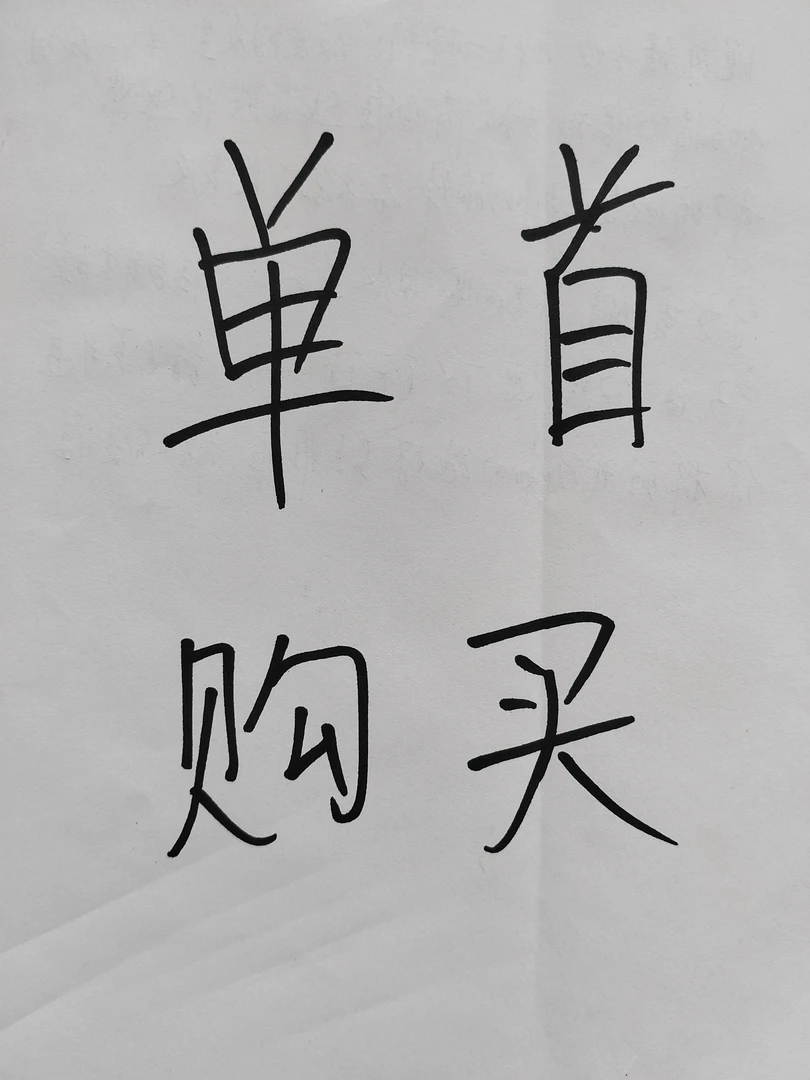 单首
购买